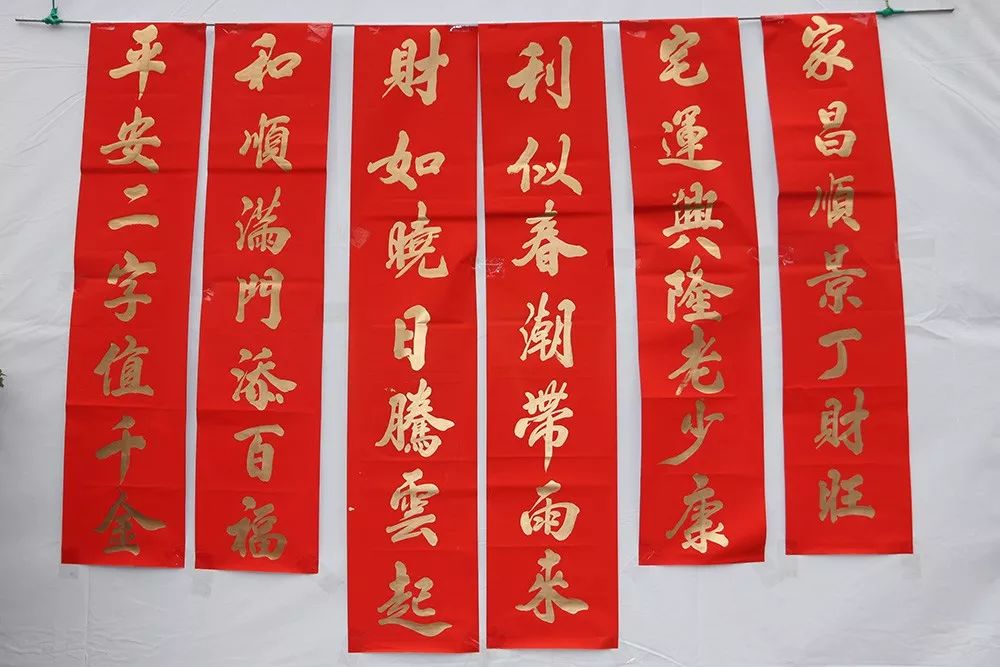 家昌順景丁財旺
宅運興隆老少康
利似春潮帶雨來
財如曉日騰雲起
和順滿門添百福
平安二字值千金